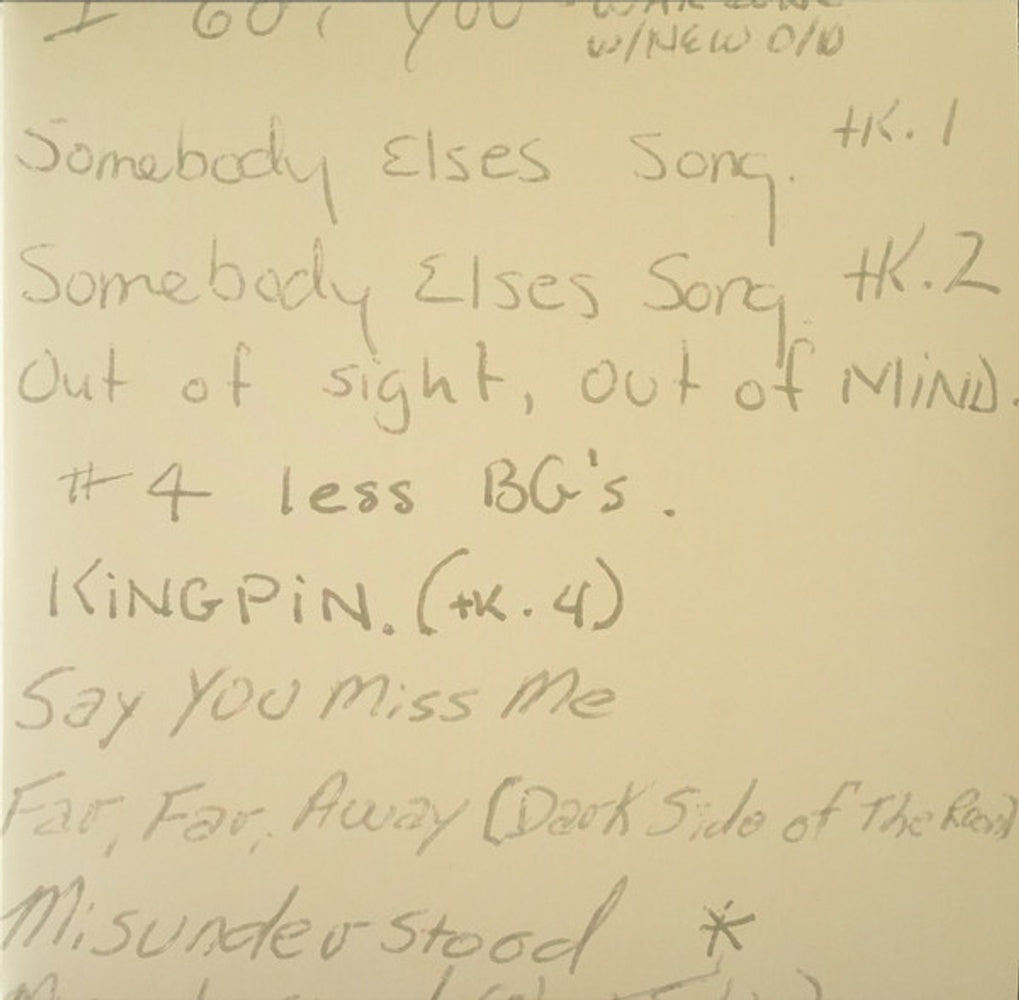 I Got You
W/NEW O/D
Somebody Elses Song. tK. 1
Somebody Elses Song. tK. 2
Out of sight, out of MIND.
#4 less BG's.
KINGPIN. (tK. 4)
Say You Miss Me
Far, Far, Away (Dark Side of The Room)
Misunderstood *